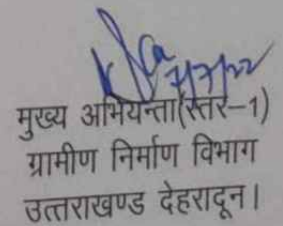 7/7/22
मुख्य अभियन्ता(स्तर–1)
ग्रामीण निर्माण विभाग
उत्तराखण्ड देहरादून।